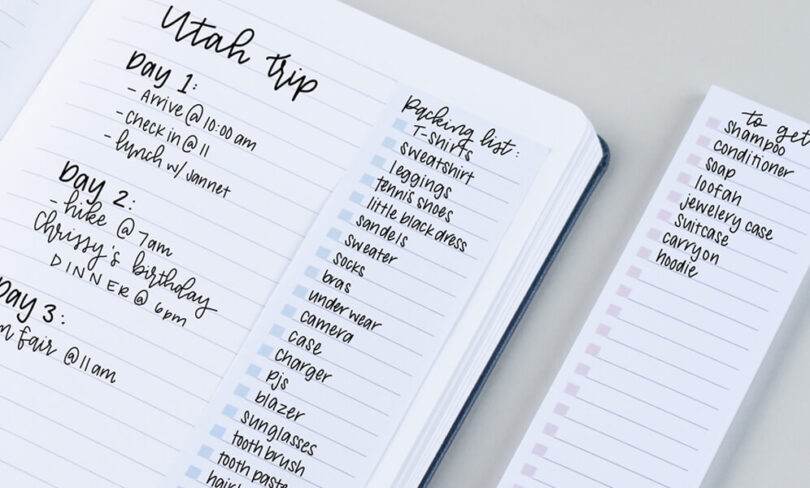 Utah trip
Day 1:
- Arrive @ 10:00 am
- Check in @ 11
- lunch w/ Jannet
Day 2:
- hike @ 7am
Chrissy's birthday
DINNER @ 6pm
Day 3:
fair @ 11am
packing list:
T-shirts
sweatshirt
leggings
tennis shoes
little black dress
sandels
sweater
socks
bras
underwear
camera
case
charger
pjs
blazer
sunglasses
tooth brush
tooth paste
to get
shampoo
conditioner
soap
loofah
jewelery case
suitcase
carryon
hoodie